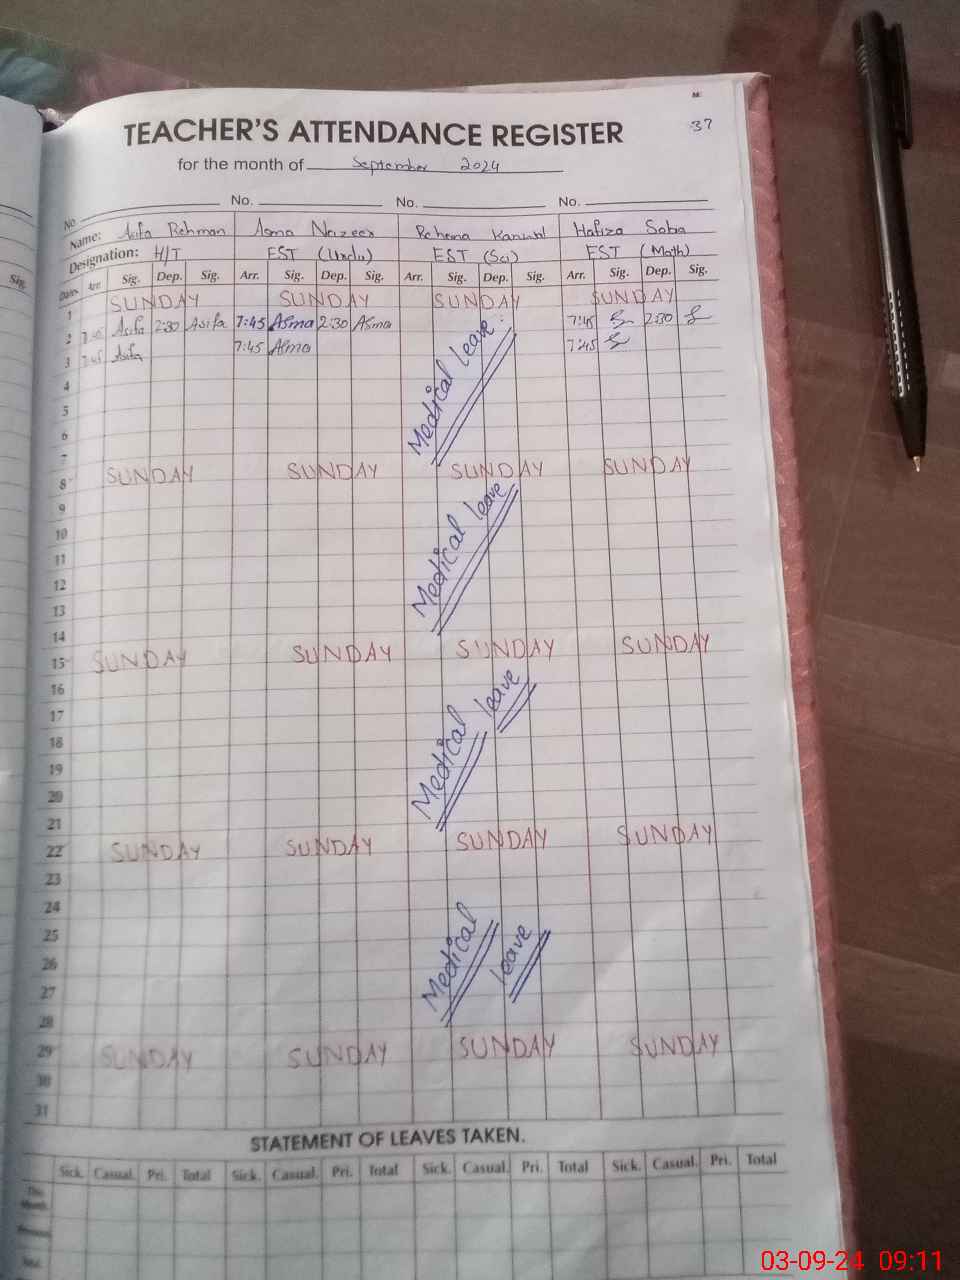 37
TEACHER'S ATTENDANCE REGISTER
for the month of September 2024
No. No. No. No.
Name: Asifa Rehman Asma Nazeer Rehema Kanwal Hafiza Saba
Designation: H/T EST (Urdu) EST (Sci) EST (Math)
Sig. Dates Arr. Sig. Dep. Sig. Arr. Sig. Dep. Sig. Arr. Sig. Dep. Sig. Arr. Sig. Dep. Sig.
1 SUNDAY SUNDAY SUNDAY SUNDAY
2 7:45 Asifa 2:30 Asifa 7:45 Asma 2:30 Asma 7:45 2:30
3 7:45 Asifa 7:45 Asma 7:45
Medical leave.
4
5
6
7
8 SUNDAY SUNDAY SUNDAY SUNDAY
9
Medical leave
10
11
12
13
14
15 SUNDAY SUNDAY SUNDAY SUNDAY
16
Medical leave
17
18
19
20
21
22 SUNDAY SUNDAY SUNDAY SUNDAY
23
24
Medical leave
25
26
27
28
29 SUNDAY SUNDAY SUNDAY SUNDAY
30
31
STATEMENT OF LEAVES TAKEN.
Sick. Casual. Pri. Total Sick. Casual. Pri. Total Sick. Casual. Pri. Total Sick. Casual. Pri. Total
This Month
Total
03-09-24 09:11